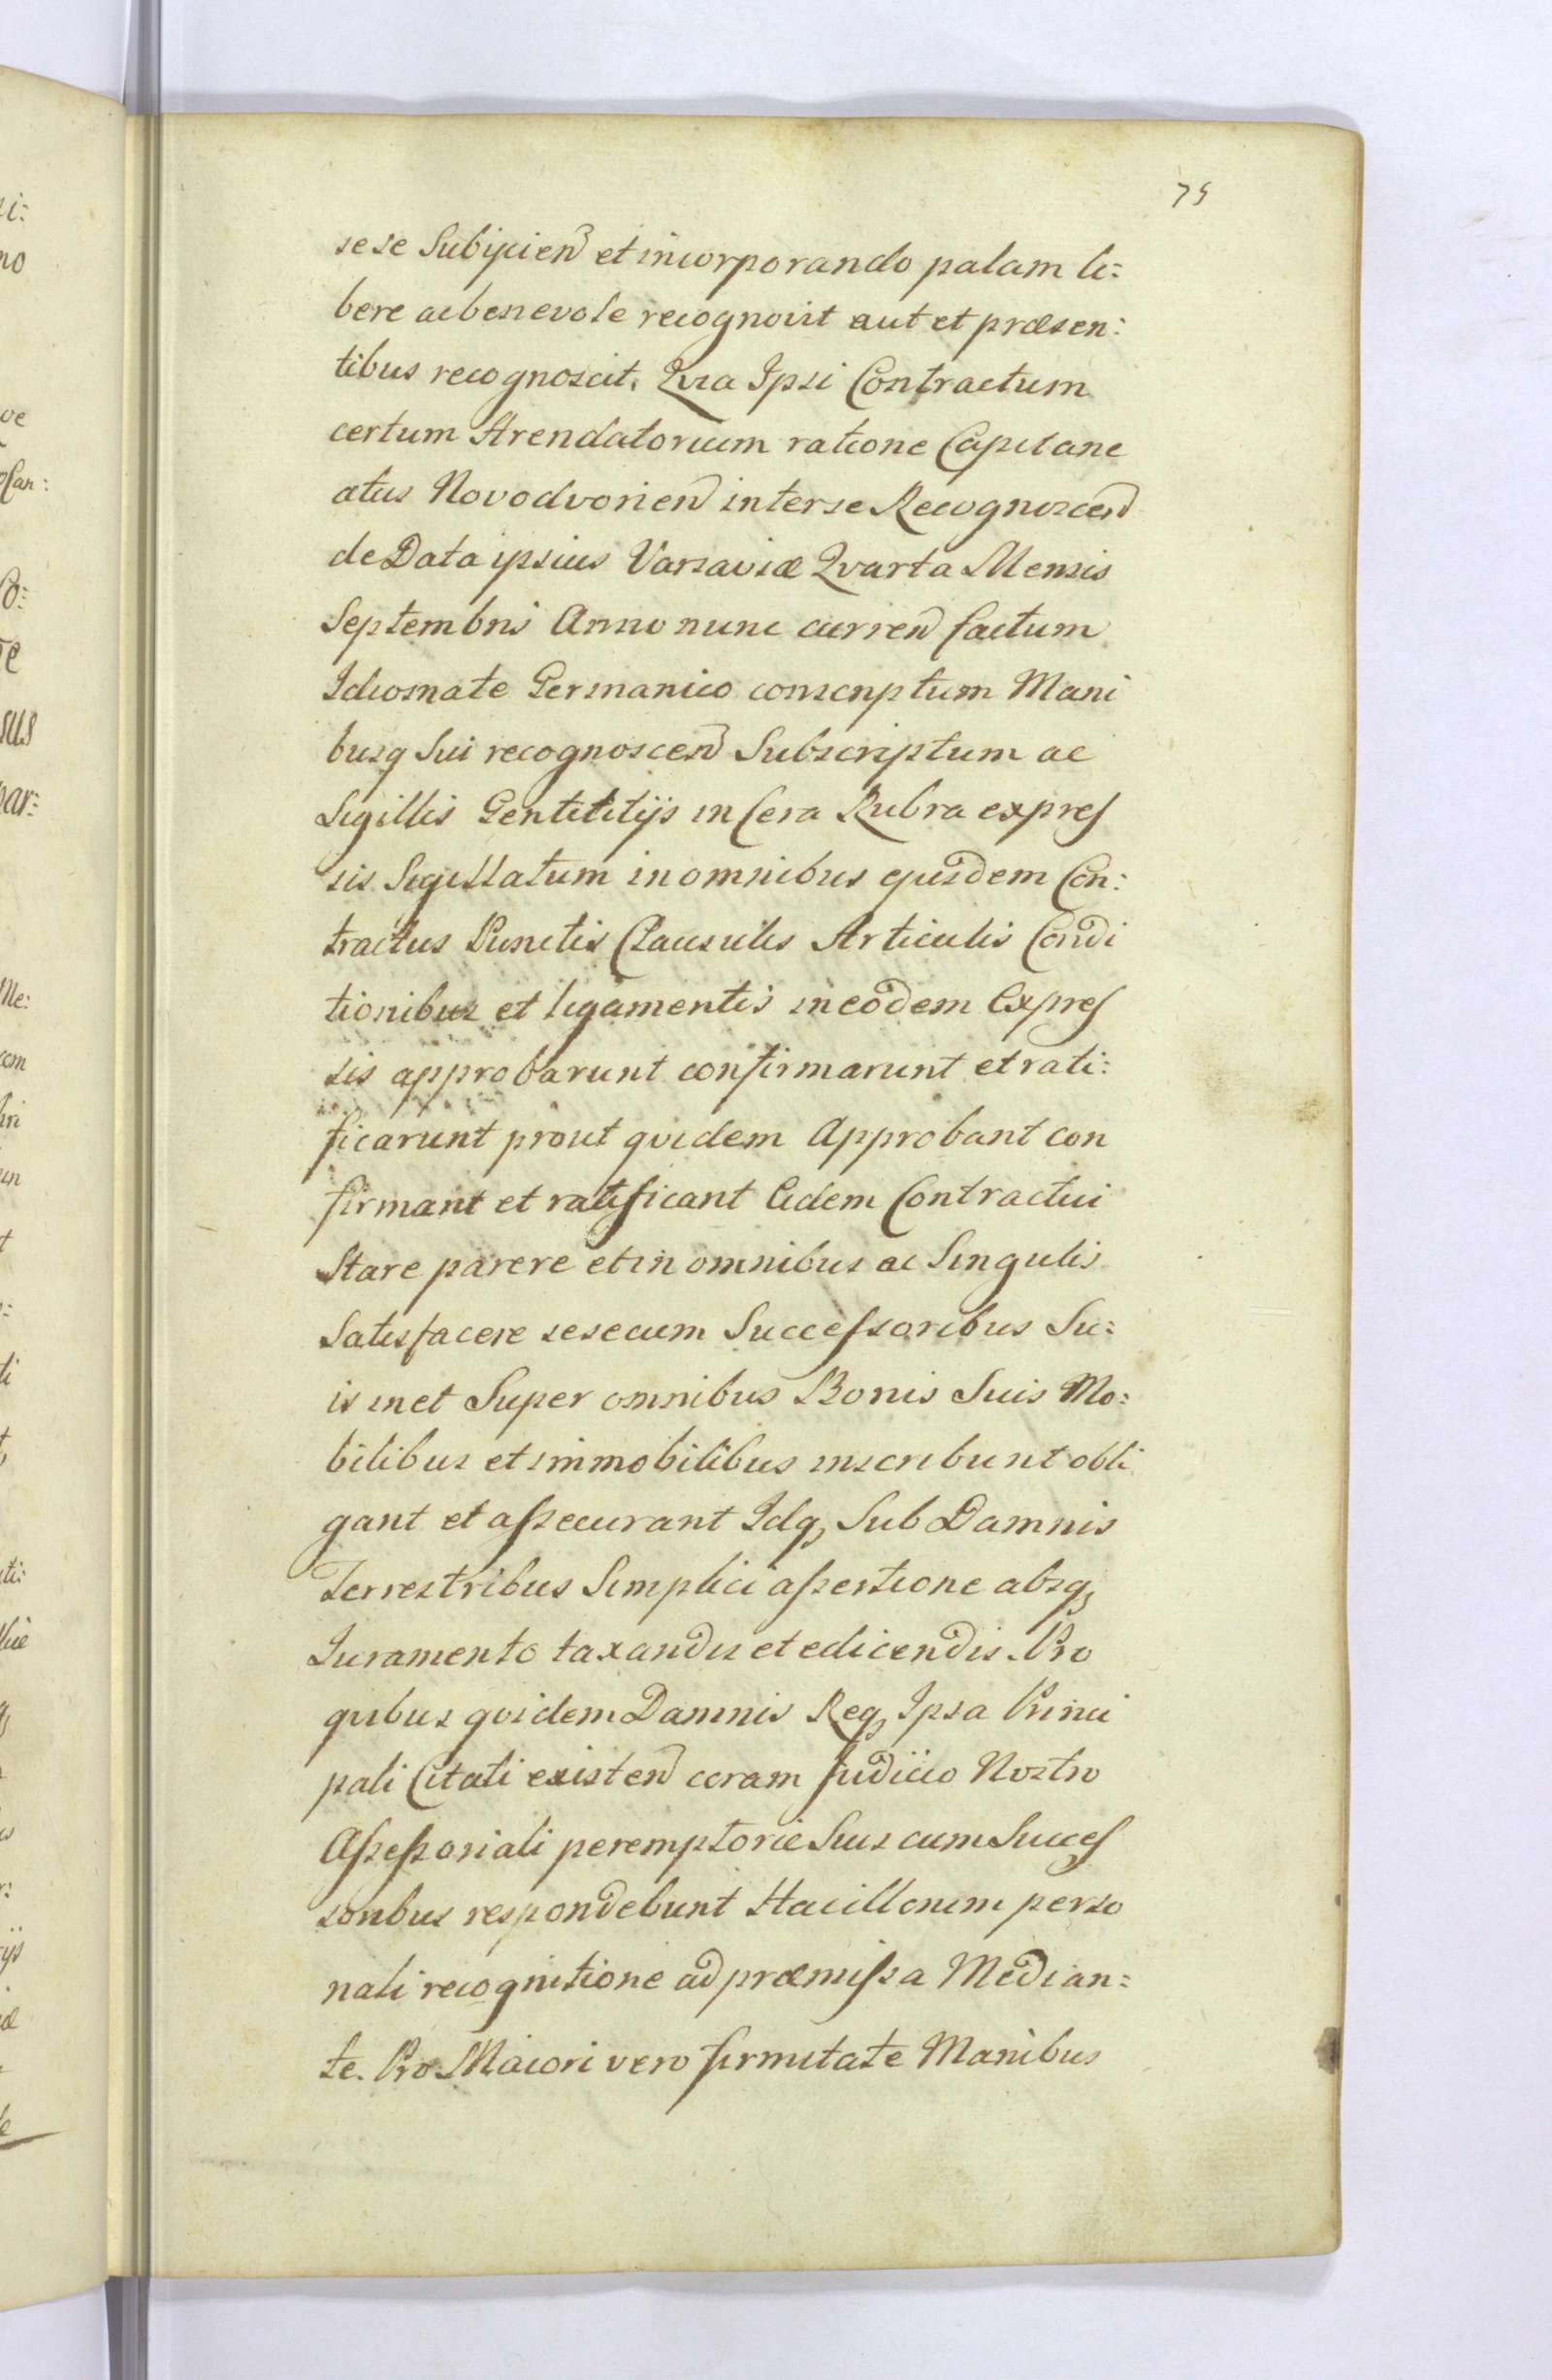 75
sese Subijcien et incorporando palam li:
bere ac benevole recognovit aut et præsen:
tibus recognoscit. Qvia Ipsi Contractum
certum Arendatorium ratione Capitane
atus Novodvorien inter se Recognoscen
de Data ipsius Varsaviæ Qvarta Mensis
Septembris Anno nunc curren factum
Idiomate Germanico conscriptum Mani
busq Sui recognoscen Subscriptum ac
Sigillis Gentilitijs in Cera Rubra expres
sis Sigillatum in omnibus ejusdem Con:
tractus Punctis Clausulis Articulis Condi
tionibus et ligamentis in eodem Expres
sis approbarunt confirmarunt et rati:
ficarunt prout qvidem Approbant con
firmant et ratificant Eidem Contractui
Stare parere et in omnibus ac Singulis
Satisfacere sese cum Successoribus Su:
is met Super omnibus Bonis Suis Mo:
bilibus et immobilibus inscribunt obli
gant et assecurant Idq, Sub Damnis
Terrestribus Simplici assertione absq,
Juramento taxandis et edicendis. Pro
qvibus qvidem Damnis Req, Ipsa Princi
pali Citati existen coram Judicio Nostro
Assessoriali peremptorie Suis cum Succes
soribus respondebunt Hac illorum perso
nali recognitione ad præmissa Median:
te. Pro Maiori vero firmitate Manibus